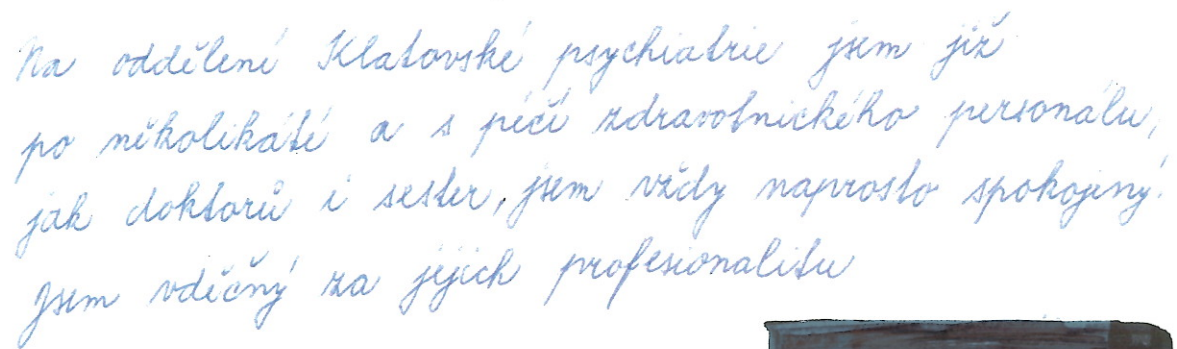 Na oddělení Klatovské psychiatrie jsem již
po několikáté a s péčí zdravotnického personálu,
jak doktorů i sester, jsem vždy naprosto spokojený.
Jsem vděčný za jejich profesionalitu